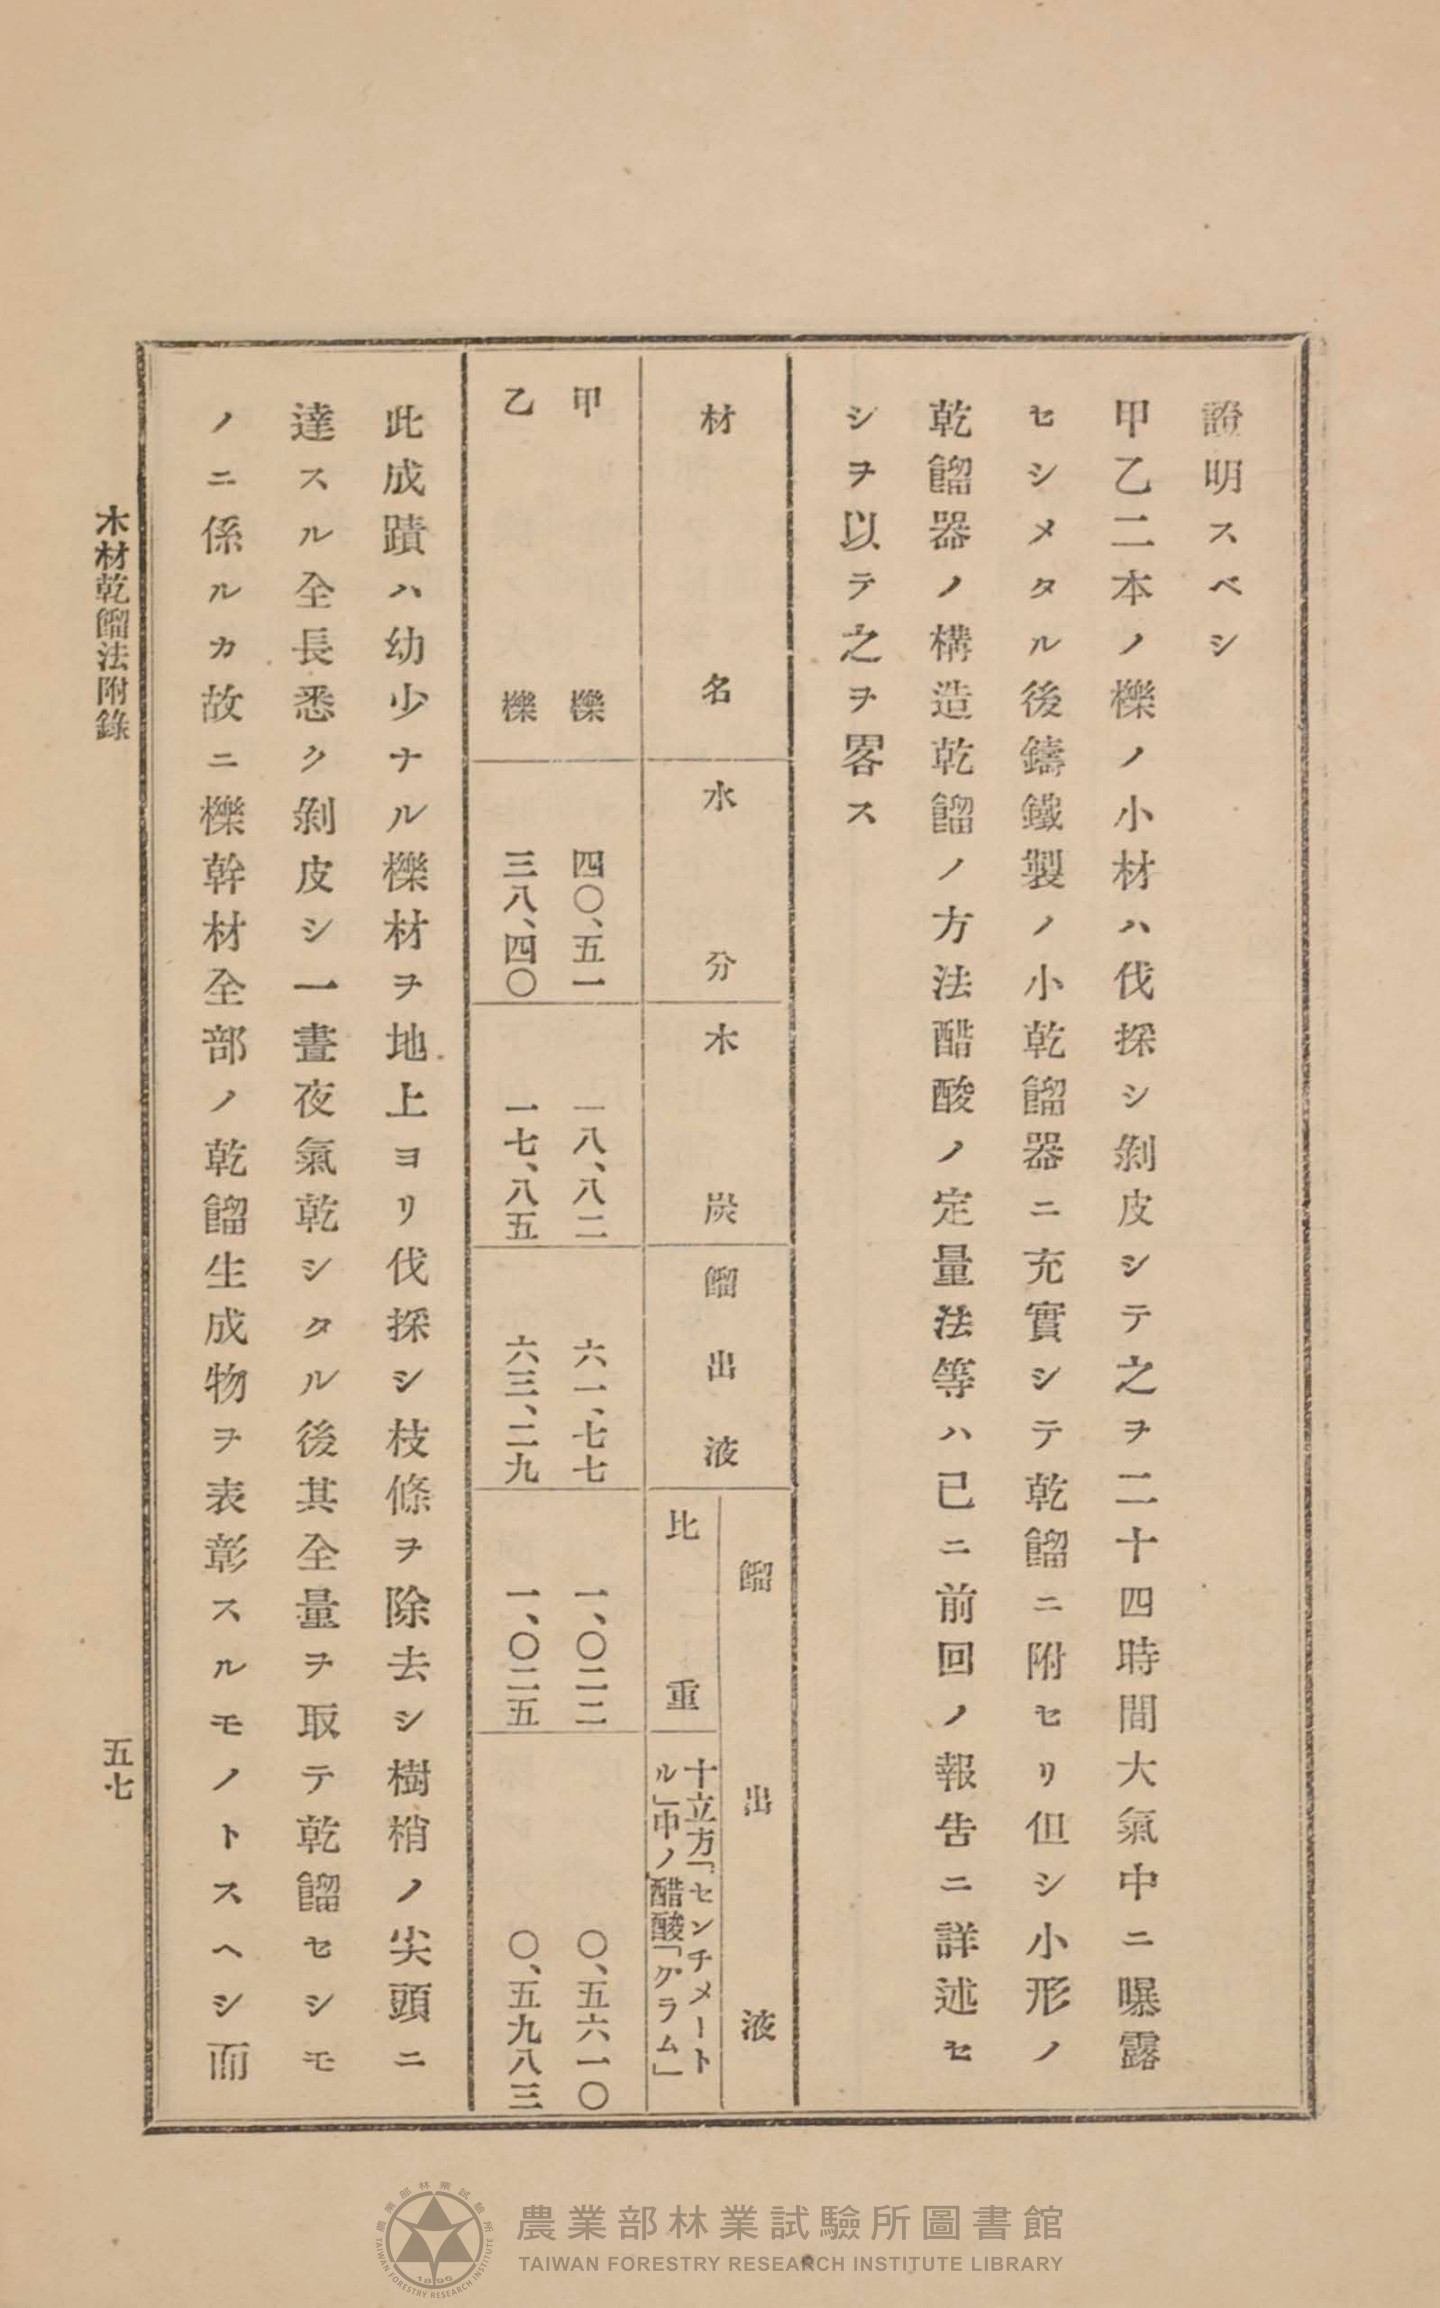 證明スベシ
甲乙二本ノ櫟ノ小材ハ伐採シ剝皮シテ之ヲ二十四時間大氣中ニ曝露
セシメタル後鑄鐵製ノ小乾餾器ニ充實シテ乾餾ニ附セリ但シ小形ノ
乾餾器ノ構造乾餾ノ方法醋酸ノ定量法等ハ已ニ前回ノ報告ニ詳述セ
シヲ以テ之ヲ畧ス
材名 水分 木炭 餾出液 餾出液
比重 十立方「センチメート
ル」中ノ醋酸「グラム」
甲 櫟 四〇、五一 一八、八二 六一、七七 一、〇二二 〇、五六一〇
乙 櫟 三八、四〇 一七、八五 六三、二九 一、〇二五 〇、五九八三
此成蹟ハ幼少ナル櫟材ヲ地上ヨリ伐採シ枝條ヲ除去シ樹梢ノ尖頭ニ
達スル全長悉ク剝皮シ一晝夜氣乾シタル後其全量ヲ取テ乾餾セシモ
ノニ係ルカ故ニ櫟幹材全部ノ乾餾生成物ヲ表彰スルモノトスヘシ而
木材乾餾法附錄
五七
農業部林業試驗所圖書館
TAIWAN FORESTRY RESEARCH INSTITUTE LIBRARY
農業部林業試驗所
TAIWAN FORESTRY RESEARCH INSTITUTE
1896